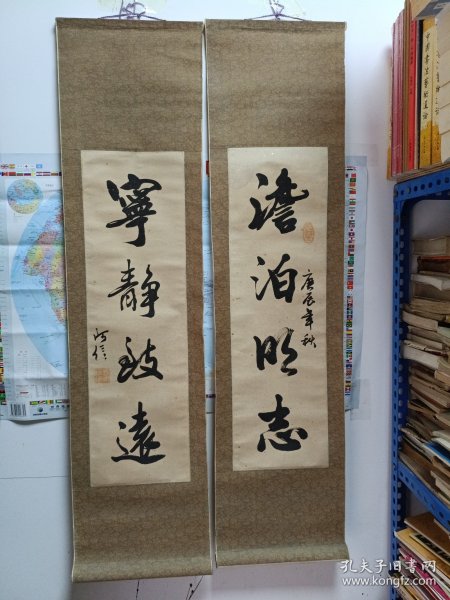 澹泊明志
庚辰年秋
寧靜致遠
孔夫子旧书网
www.kongfz.com